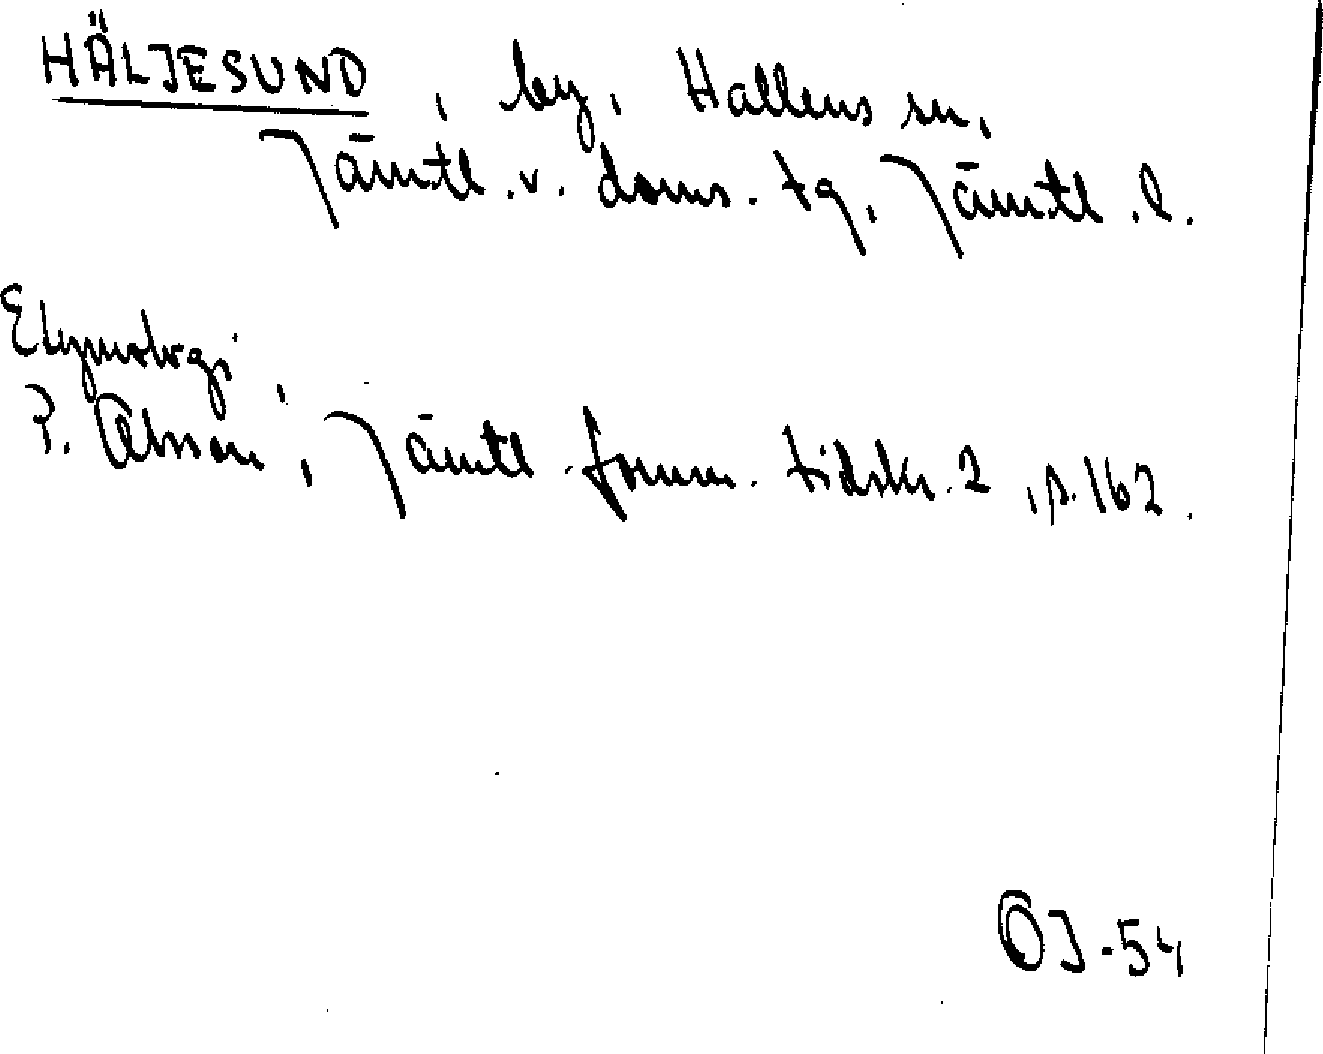 HÄLJESUND, by, Hallens sn,
Jämtl. v. doms. tg, Jämtl. l.
Etymologi,
P. Olsson, Jämtl. fornm. tidskr. 2, s. 162.
OJ-54